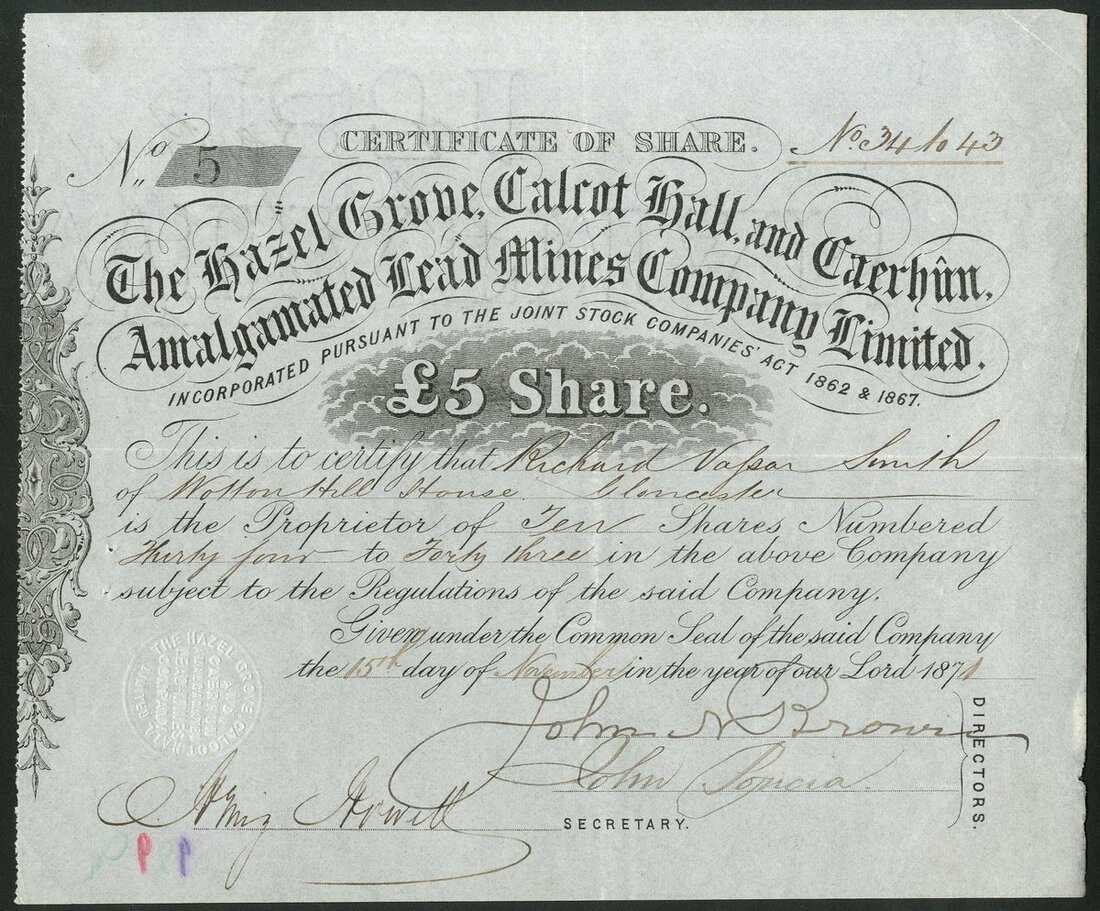 No. 5
CERTIFICATE OF SHARE.
No. 34 to 43
The Hazel Grove, Calcot Hall, and Caerhûn,
Amalgamated Lead Mines Company Limited.
INCORPORATED PURSUANT TO THE JOINT STOCK COMPANIES' ACT 1862 & 1867.
£5 Share.
This is to certify that Richard Vassar Smith
of Wotton Hill House. Gloucester
is the Proprietor of Ten Shares Numbered
Thirty four to Forty three in the above Company
subject to the Regulations of the said Company.
Given under the Common Seal of the said Company
the 15th day of November in the year of our Lord 1871
John N Brown
John
DIRECTORS.
Howell
SECRETARY.
THE HAZEL GROVE CALCOT HALL
AND CAERHUN
AMALGAMATED
LEAD MINES
COMPANY
LIMITED
P P P